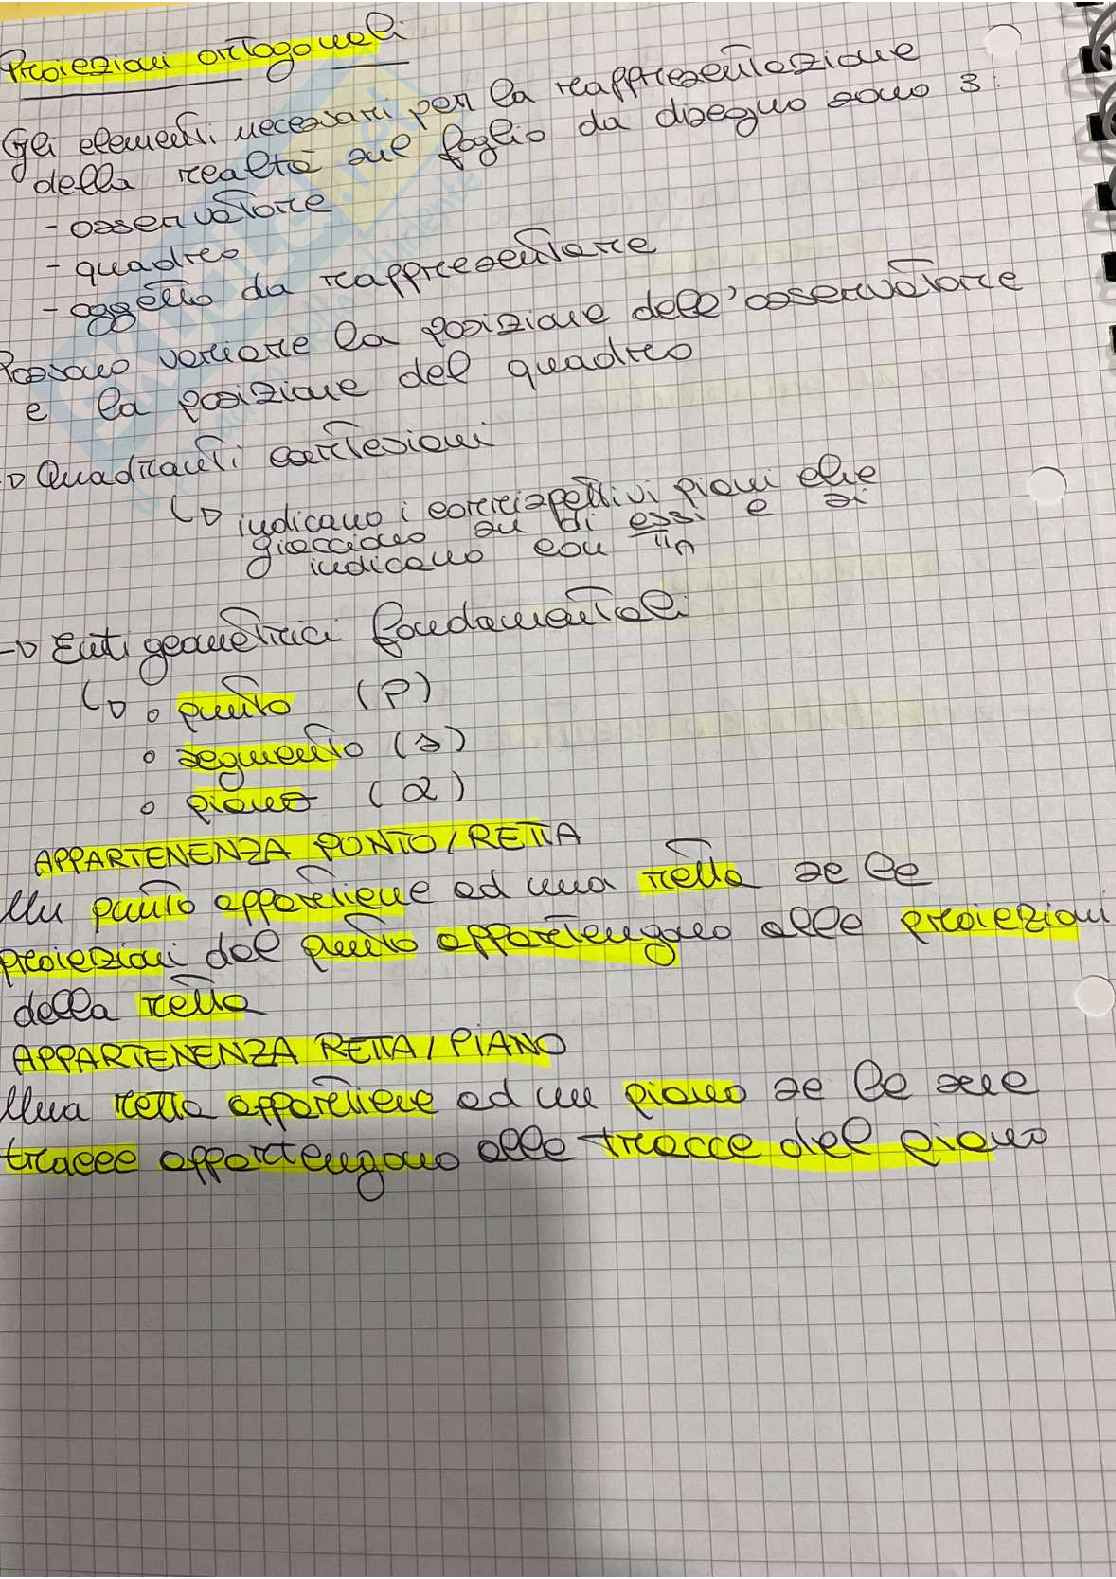 Proiezioni ortogonali
Gli elementi necessari per la rappresentazione
della realtà sul foglio da disegno sono 3:
- osservatore
- quadro
- oggetto da rappresentare
Possono variare la posizione dell'osservatore
e la posizione del quadro
-> Quadranti cartesiani
↳ indicano i corrispettivi piani che
giacciono su di essi e si
indicano con πn
-> Enti geometrici fondamentali
↳ • punto (P)
• segmento (s)
• piano (α)
APPARTENENZA PUNTO/RETTA
Un punto appartiene ad una retta se le
proiezioni del punto appartengono alle proiezioni
della retta
APPARTENENZA RETTA/PIANO
Una retta appartiene ad un piano se le sue
tracce appartengono alle tracce del piano